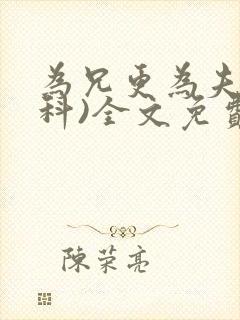 為兄更為夫
科)全文免費
陳荣亮